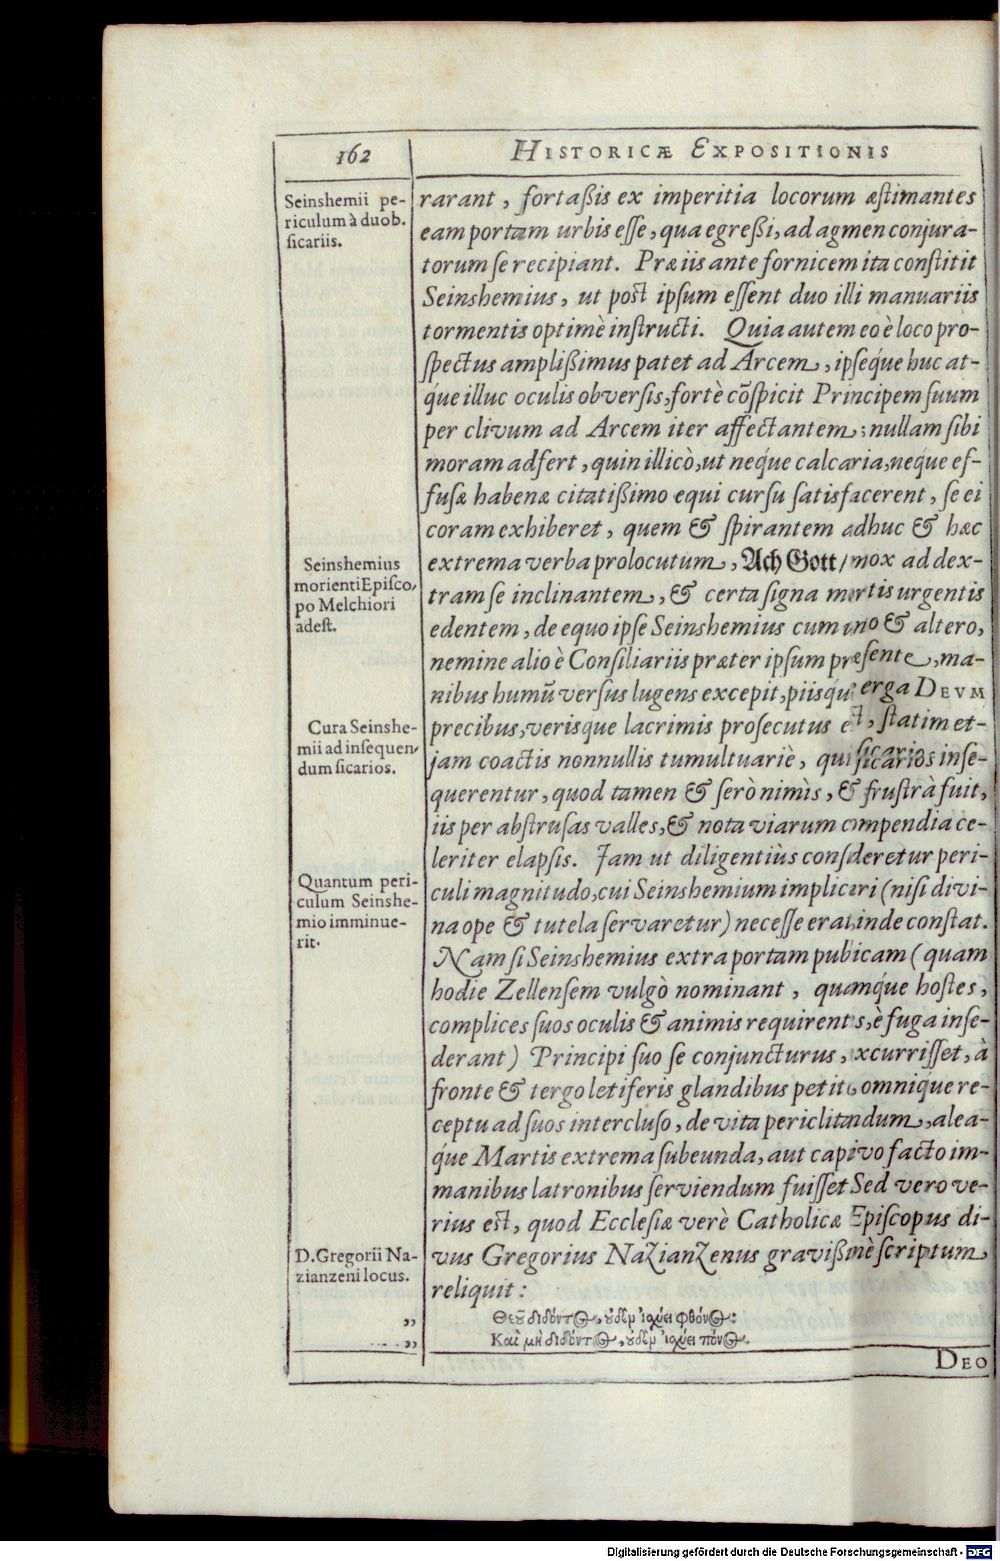 162
HISTORICÆ EXPOSITIONIS
Seinshemii pe-
riculum à duob.
sicariis.
rarant, fortaßis ex imperitia locorum æstimantes
eam portam urbis esse, qua egreßi, ad agmen conjura-
torum se recipiant. Præ iis ante fornicem ita constitit
Seinshemius, ut post ipsum essent duo illi manuariis
tormentis optimè instructi. Quia autem eo è loco pro-
spectus amplißimus patet ad Arcem, ipseq́ue huc at-
q́ue illuc oculis obversis, fortè cõspicit Principem suum
per clivum ad Arcem iter affectantem; nullam sibi
moram adfert, quin illicò, ut neq́ue calcaria, neq́ue ef-
fusæ habenæ citatißimo equi cursu satisfacerent, se ei
coram exhiberet, quem & spirantem adhuc & hæc
Seinshemius
morienti Episco-
po Melchiori
adest.
extrema verba prolocutum, Ach Gott/ mox ad dex-
tram se inclinantem, & certa signa mortis urgentis
edentem, de equo ipse Seinshemius cum uno & altero,
nemine alio è Consiliariis præter ipsum præsente, ma-
nibus humũ versus lugens excepit, piisq́ue erga DEVM
Cura Seinshe-
mii ad insequen-
dum sicarios.
precibus, verisque lacrimis prosecutus est, statim et-
jam coactis nonnullis tumultuariè, qui sicarios inse-
querentur, quod tamen & serò nimìs, & frustrà fuit,
iis per abstrusas valles, & nota viarum compendia ce-
leriter elapsis. Jam ut diligentiùs consideretur peri-
Quantum peri-
culum Seinshe-
mio imminue-
rit.
culi magnitudo, cui Seinshemium implicari (nisi divi-
na ope & tutela servaretur) necesse erat, inde constat.
Nam si Seinshemius extra portam publicam (quam
hodie Zellensem vulgò nominant, quamq́ue hostes,
complices suos oculis & animis requirentes, è fuga inse-
derant) Principi suo se conjuncturus, excurrisset, à
fronte & tergo letiferis glandibus petito, omniq́ue re-
ceptu ad suos intercluso, de vita periclitandum, alea-
q́ue Martis extrema subeunda, aut captivo facto im-
manibus latronibus serviendum fuisset. Sed vero ve-
rius est, quod Ecclesiæ verè Catholicæ Episcopus di-
D. Gregorii Na-
zianzeni locus.
vus Gregorius Nazianzenus gravißimè scriptum
reliquit:
„ Θεοῦ διδόντος, οὐδὲν ἰσχύει φθόνος:
„ Καὶ μὴ διδόντος, οὐδὲν ἰσχύει πόνος.
DEO
Digitalisierung gefördert durch die Deutsche Forschungsgemeinschaft - DFG